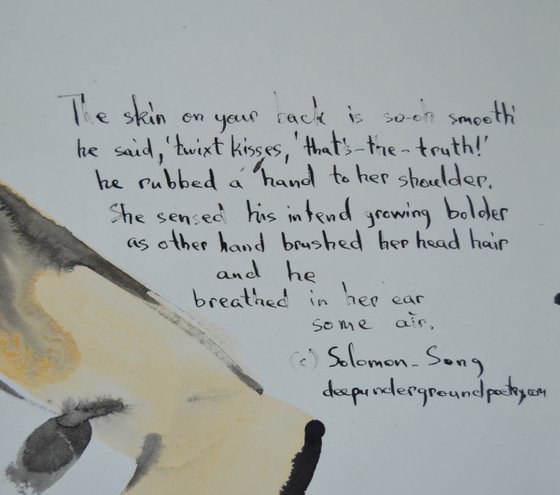 The skin on your back is so-oh smooth'
he said, 'twixt kisses, 'that's-the-truth!'
he rubbed a hand to her shoulder.
She sensed his intend growing bolder
as other hand brushed her head hair
and he
breathed in her ear
some air.
(c) Solomon-Song
deepundergroundpoetry.com